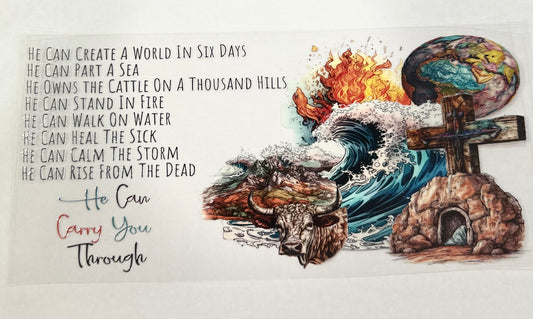 He Can Create A World In Six Days
He Can Part A Sea
He Owns the Cattle On A Thousand Hills
He Can Stand In Fire
He Can Walk On Water
He Can Heal The Sick
He Can Calm The Storm
He Can Rise From The Dead
He Can
Carry You
Through